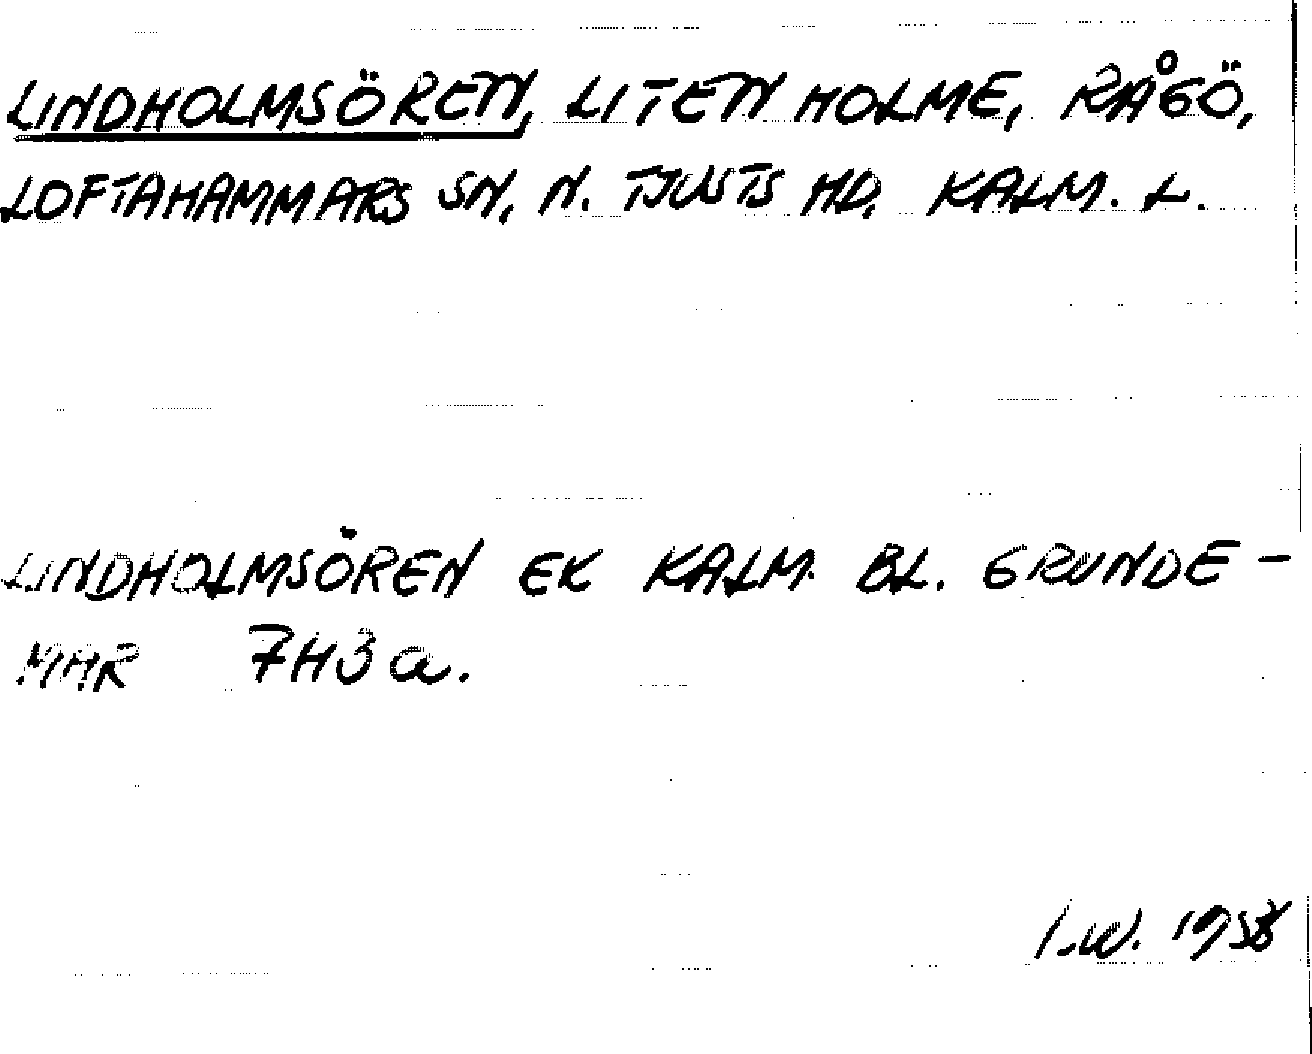 LINDHOLMSÖREN, LITEN HOLME, RÅGÖ,
LOFTAHAMMARS SN, N. TJUSTS HD, KALM. L.
LINDHOLMSÖREN EK KALM. BL. GRUNDE-
MAR 7H3a.
I.W.